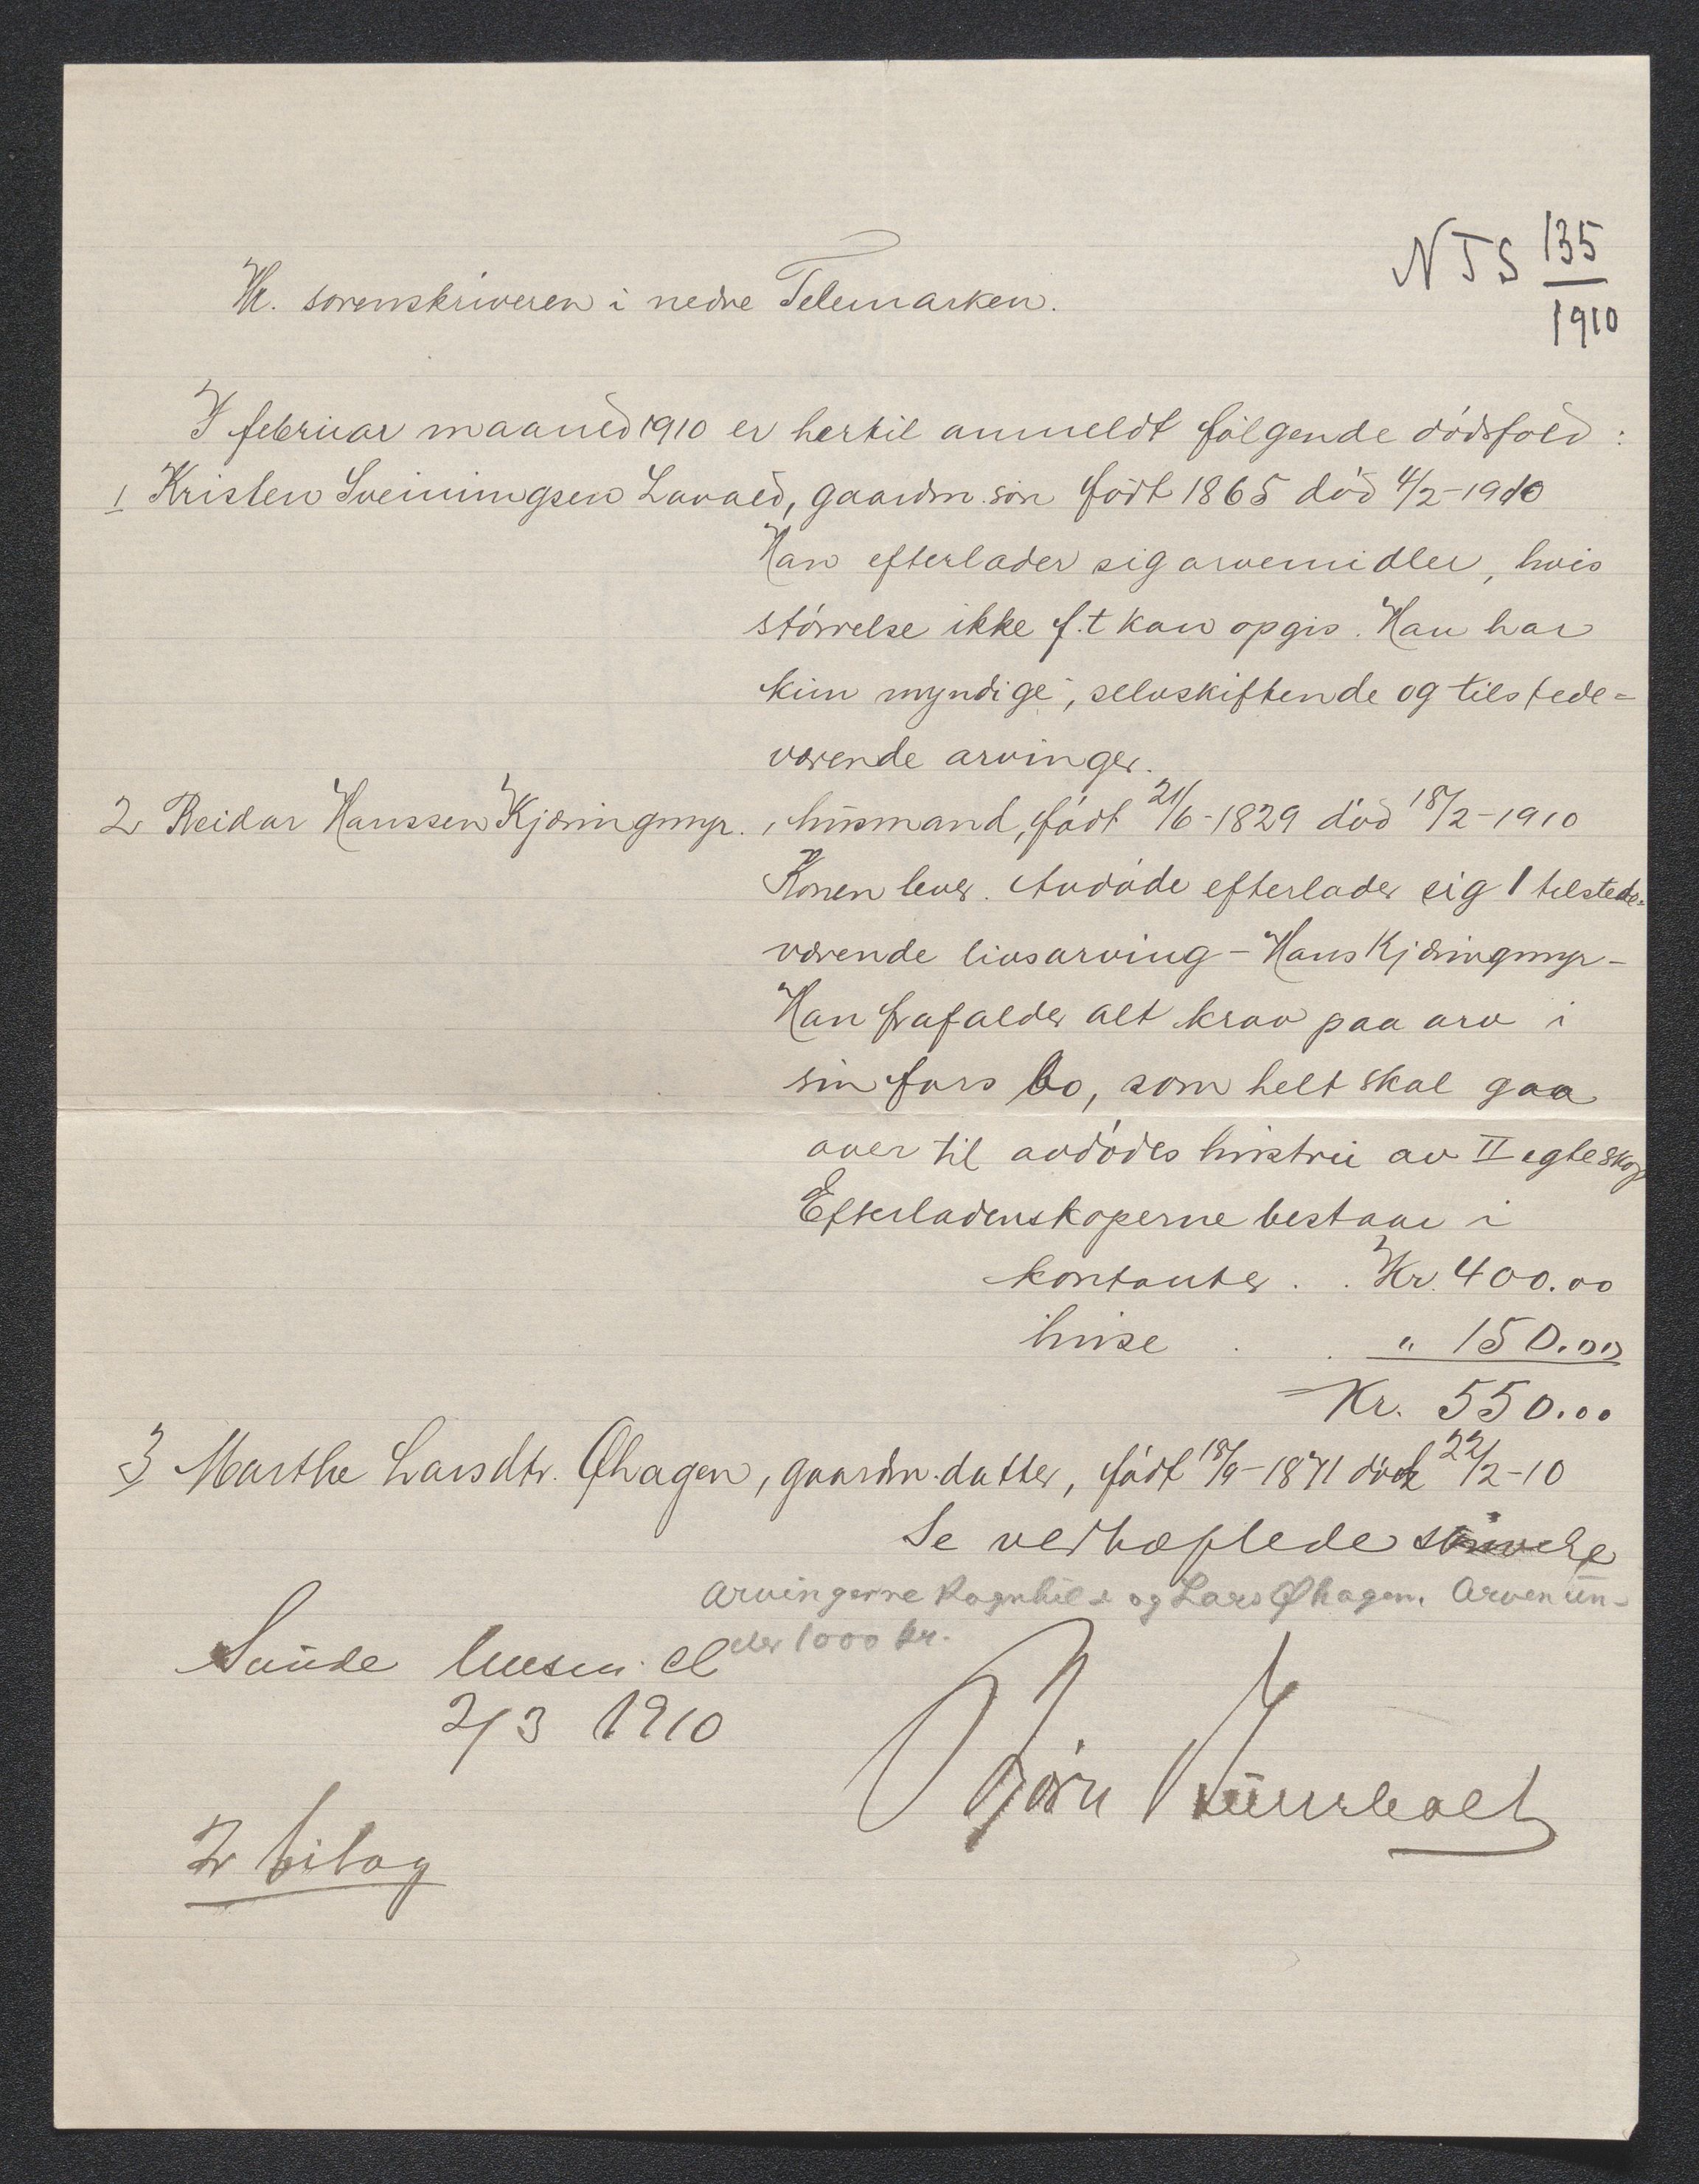 NTS 135
1910
Hr. sorenskriveren i nedre Telemarken.
I februar maaned 1910 er hertil anmeldt følgende dødsfald:
1 Kristen Sveinungsen Lavaed, gaardm. søn født 1865 død 4/2-1910
Han efterlader sig arvemidler, hvis
størrelse ikke f.t kan opgis. Han har
kun myndige, selvskiftende og tilstede=
værende arvinger.
2 Reidar Hanssen Kjæringmyr., husmand, født 21/6-1829 død 18/2-1910
Konen lever. Avdøde efterlader sig 1 tilstede=
værende livsarving - Hans Kjæringmyr -
Han frafalder alt krav paa arv i
sin fars bo, som helt skal gaa
over til avdødes hustru av II egteskap
Efterladenskaperne bestaar i
kontanter . . Kr. 400.00
huse . . " 150.00
Kr. 550.00
3 Marthe Larsdtr. Øhagen, gaardm. datter, født 18/9-1871 død 22/2-10
Se vedhæftede
Arvingerne Ragnhild og Lars Øhagen. Arven un-
der 1000 kr.
Saude
2/3 1910
Bjørn
2 bilag